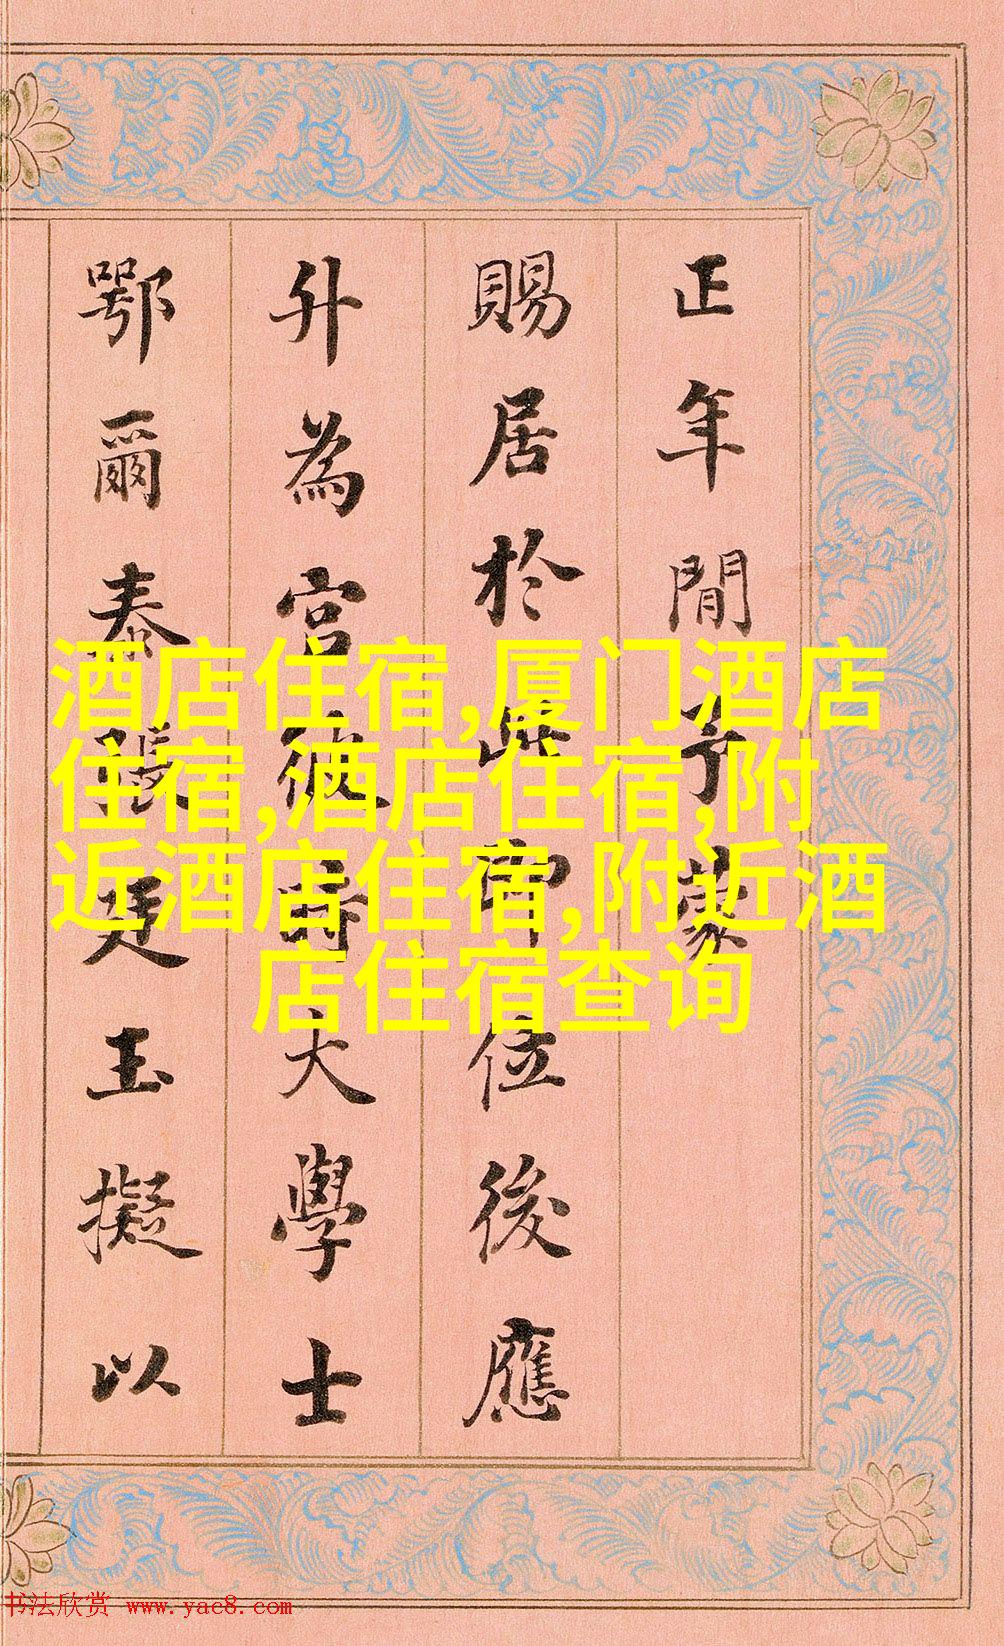 正年間予蒙
賜居於此即位後應
升為宮彼時大學士
鄂爾泰張廷玉擬以
酒店住宿,厦门酒店
住宿,酒店住宿,附
近酒店住宿,附近酒
店住宿查询
书法欣赏 www.yac8.com